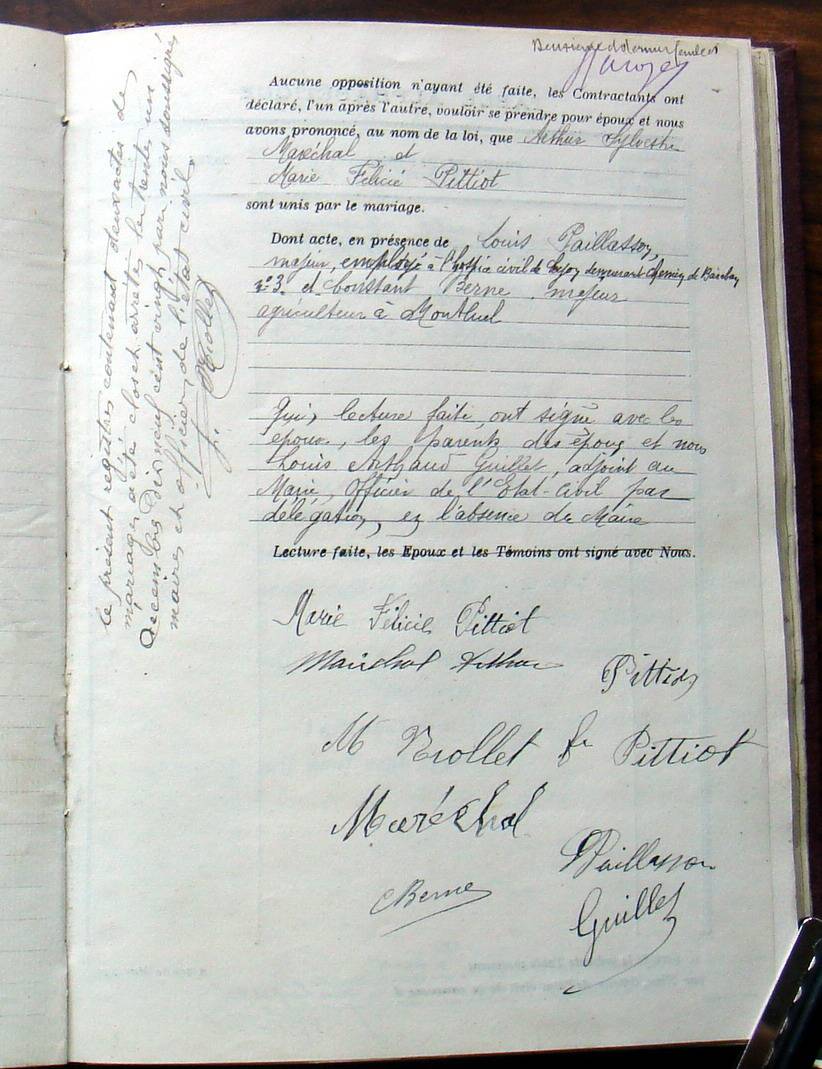 Deuxième et dernier feuillet
Aucune opposition n'ayant été faite, les Contractants ont
déclaré, l'un après l'autre, vouloir se prendre pour époux et nous
avons prononcé, au nom de la loi, que Arthur Sylvestre
Maréchal et
Marie Félicie Pittiot
sont unis par le mariage.
Dont acte, en présence de Louis Paillasson,
majeur, employé à l'hospice civil de Lyon demeurant chemin de
n° 3 et Constant Berne majeur
agriculteur à Montluel
Qui, lecture faite, ont signé avec les
époux, les parents des époux et nous
Louis Arthaud Guillet, adjoint au
Maire, Officier de l'Etat-Civil par
délégation, en l'absence du Maire
Lecture faite, les Epoux et les Témoins ont signé avec Nous.
Marie Félicie Pittiot
Maréchal Arthur
Pittiot
M Trollet fe Pittiot
Maréchal
Paillasson
CBerne
Guillet
le présent registre contenant deux actes de
mariages a été clos et arrêté le trente un
Décembre dix neuf cent vingt par nous soussigné
maire et officier de l'état civil.